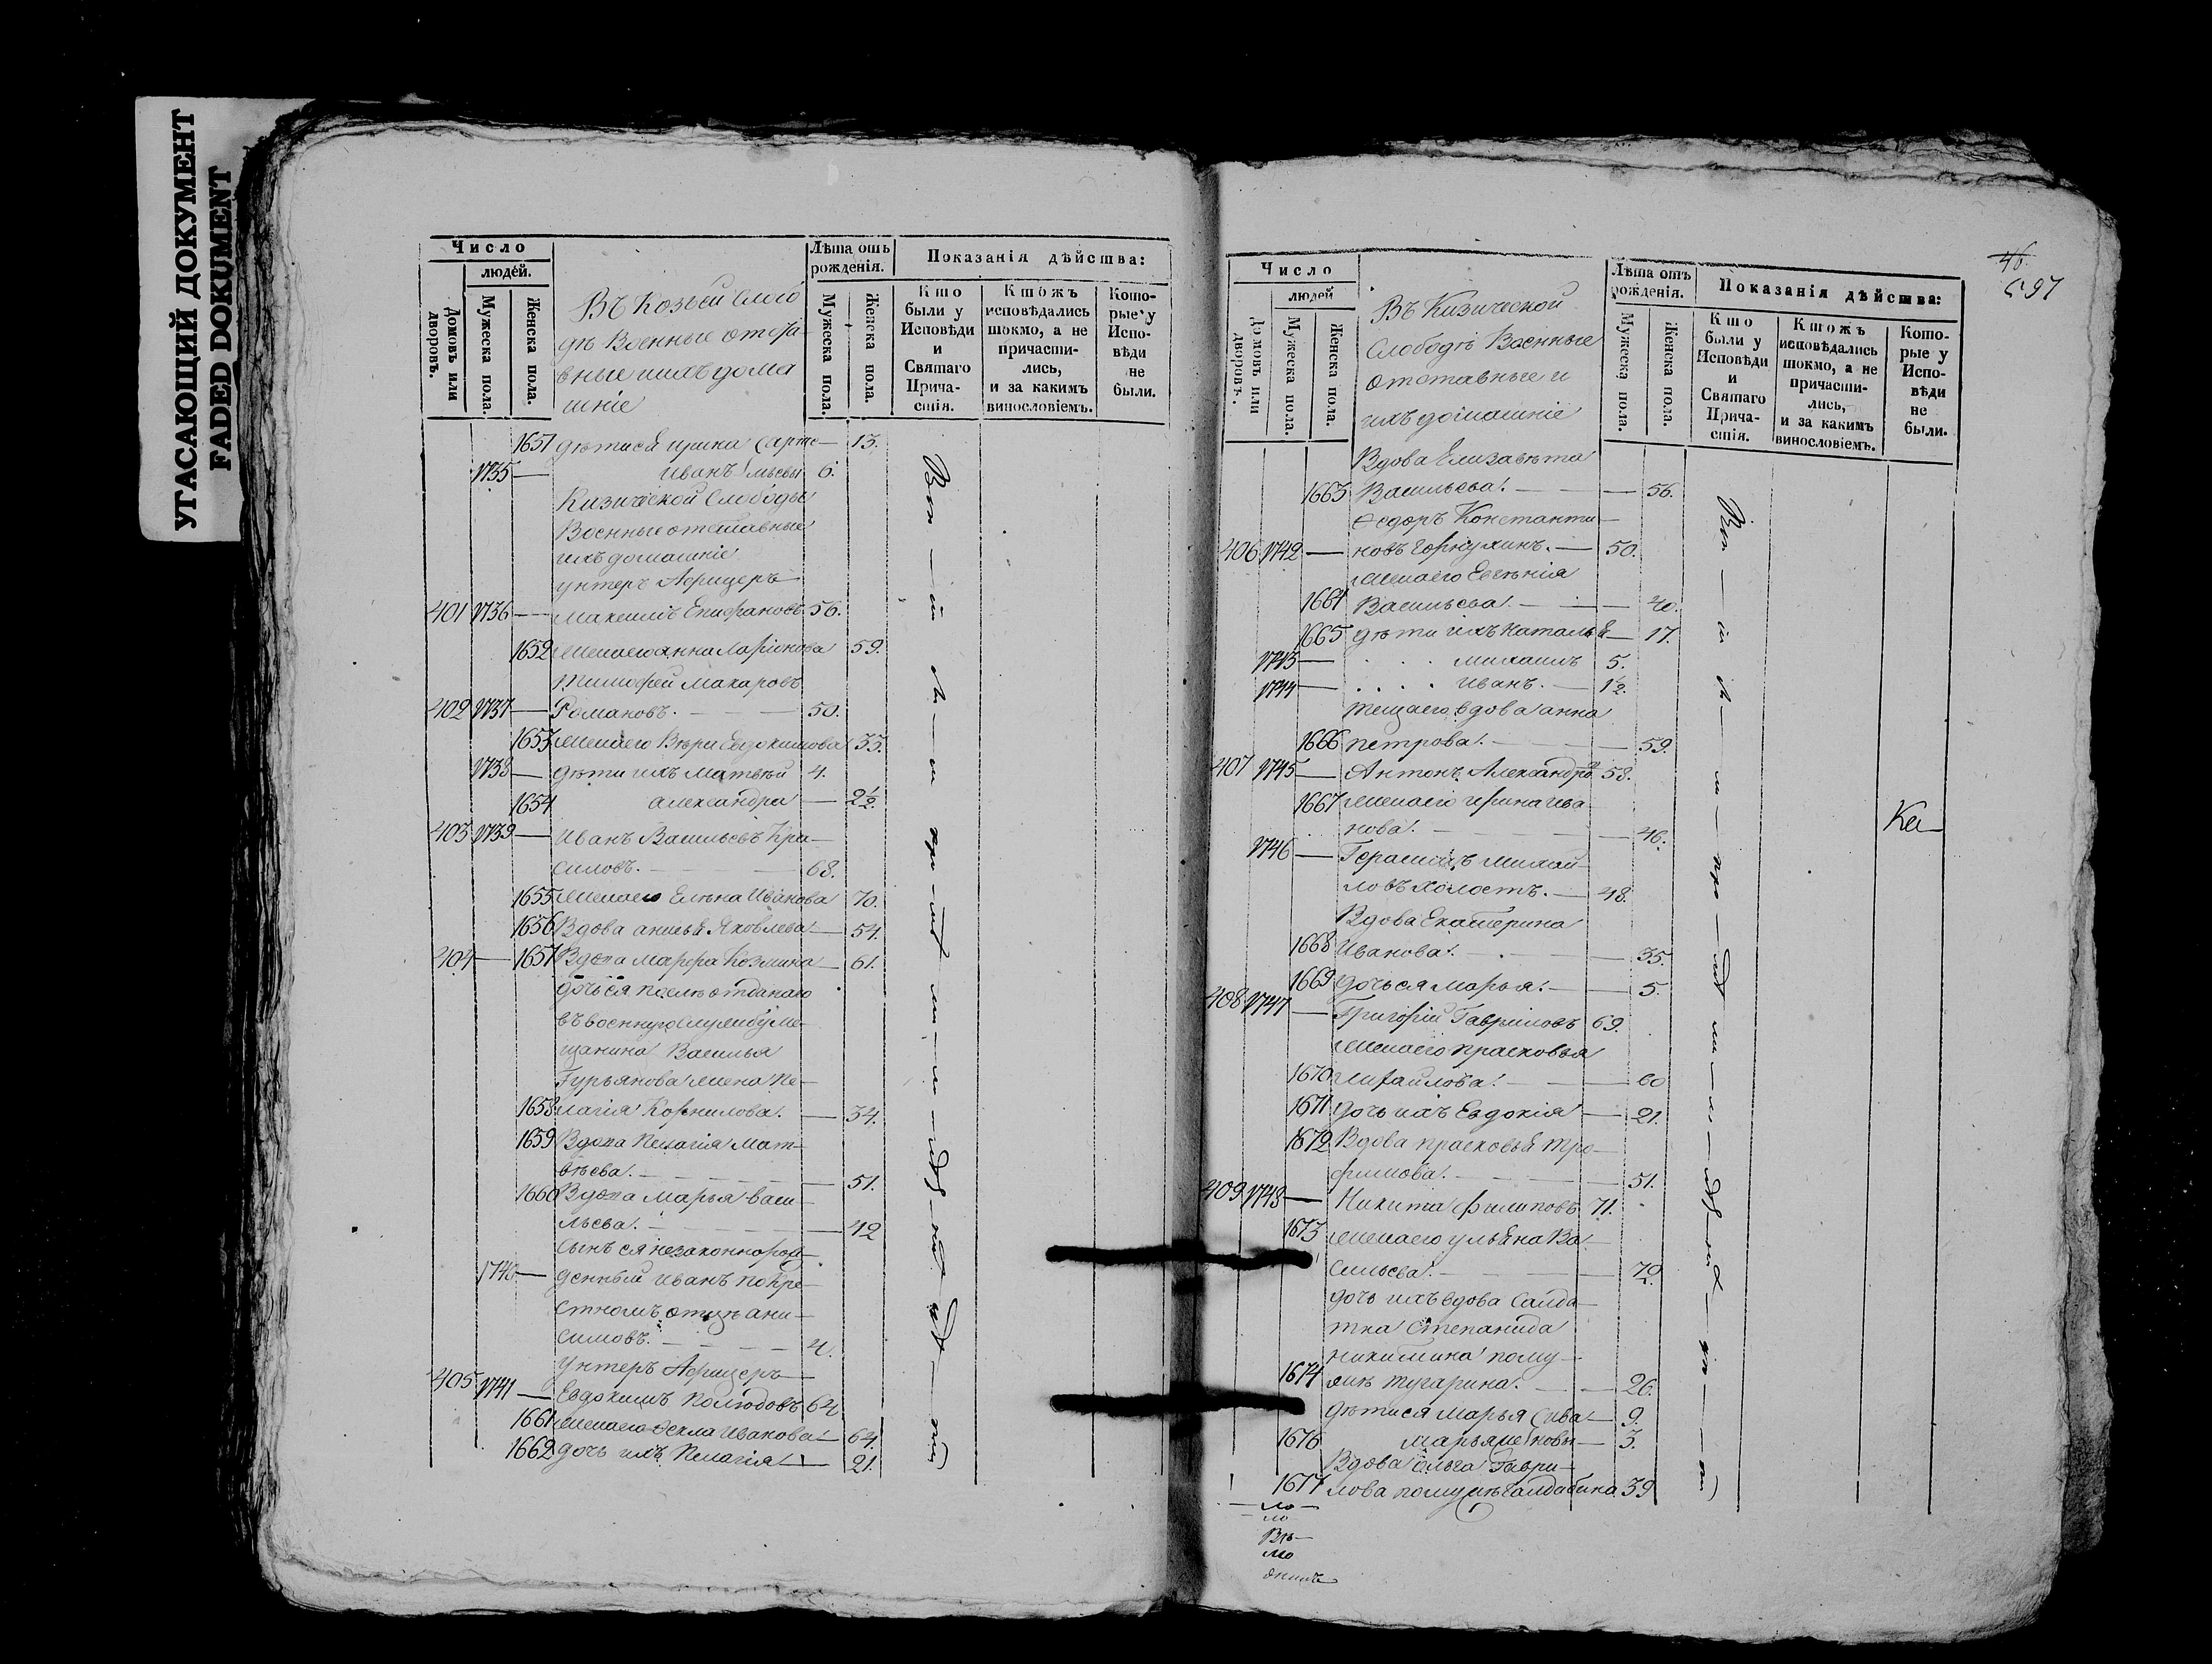 УГАСАЮЩИЙ ДОКУМЕНТ
FADED DOKUMENT
Число
людей.
Домовъ или дворовъ.
Мужеска пола.
Женска пола.
Въ Козьей Слобо
дѣ Военные отста
вные ихъ дома
шніе
Лѣта отъ рожденія.
Мужеска пола.
Женска пола.
Показанія дѣйства:
Кто были у Исповѣди и Святаго Причастія.
Ктожъ исповѣдались токмо, а не причастились, и за какимъ винословіемъ.
Которые у Исповѣди не были.
1651 дѣти ея 13.
1735 — Иванъ 6.
Кизической Слободы
Военные отставные
ихъ домашніе
унтеръ Афицеръ
401 1736 — Максимъ Епифановъ 56.
1652 жена его Анна Ларіонова 59.
Тимофей Макаровъ
402 1737 — Романовъ. — 50.
1653 жена его Вѣра Евдокимова 33.
1738 — дѣти ихъ Матвѣй 4.
1654 александра — 2½.
403 1739 — Иванъ Васильевъ Кра—
силовъ. — 68.
1655 жена его Елена Иванова 70.
1656 Вдова анисья Яковлева — 54.
404 — 1657 Вдова Марфа Козмина — 61.
дочь ея послѣ отданаго
въ военную службу Ме—
щанина Василья
Гурьянова жена Пе—
1658 лагія Корнилова. — 34.
1659 Вдова Пелагія Мат—
вѣева. — 51.
1660 Вдова Марья Васи—
льева. — 42
Сынъ ея незаконнорож—
1740 — денный Иванъ по кре—
стномъ отцѣ ани—
симовъ. — 4.
Унтеръ Афицеръ
405 1741 — Евдокимъ Полюдовъ 64
1661 жена его Ѳекла Иванова — 64.
1662 дочь ихъ Пелагія — 21.
46.
597
Число
людей
Домовъ или дворовъ.
Мужеска пола.
Женска пола.
Въ Кизической
Слободѣ Военные
отставные и
ихъ домашніе
Лѣта отъ рожденія.
Мужеска пола.
Женска пола.
Показанія дѣйства:
Кто были у Исповѣди и Святаго Причастія.
Ктожъ исповѣдались токмо, а не причастились, и за какимъ винословіемъ.
Которые у Исповѣди не были.
Вдова Елизавѣта
1663 Васильева. — 56.
Ѳедоръ Константи—
406 1742 — новъ — 50.
жена его Евгенія
1664 Васильева. — 40.
1665 дѣти ихъ Наталья — 17.
1743 — михаилъ 5.
1744 — Иванъ. — 1½.
теща его вдова анна
1666 петрова. — 59.
407 1745 — Антонъ Александровъ 58.
1667 жена его ирина ива
нова. — 46.
1746 — Герасимъ михай—
ловъ холостъ. — 48.
Вдова Екатерина
1668 Иванова. — 35.
1669 дочь ея марья. — 5.
408 1747 — Григорій Гавриловъ 69.
жена его прасковья
1670 михайлова. — 60
1671 дочь ихъ Евдокія — 21.
1672 Вдова прасковья Тро—
фимова. — 51.
409 1748 — Никита Филиповъ 71.
1673 жена его ульяна Ва—
сильева. —
дочь ихъ вдова Салда—
тка Степанида
никитина по му—
1674 жѣ Тугарина. — 26.
дѣти ея марья — 9.
1676 марья — 3.
Вдова ольга Гаври—
1677 лова по мужѣ 39